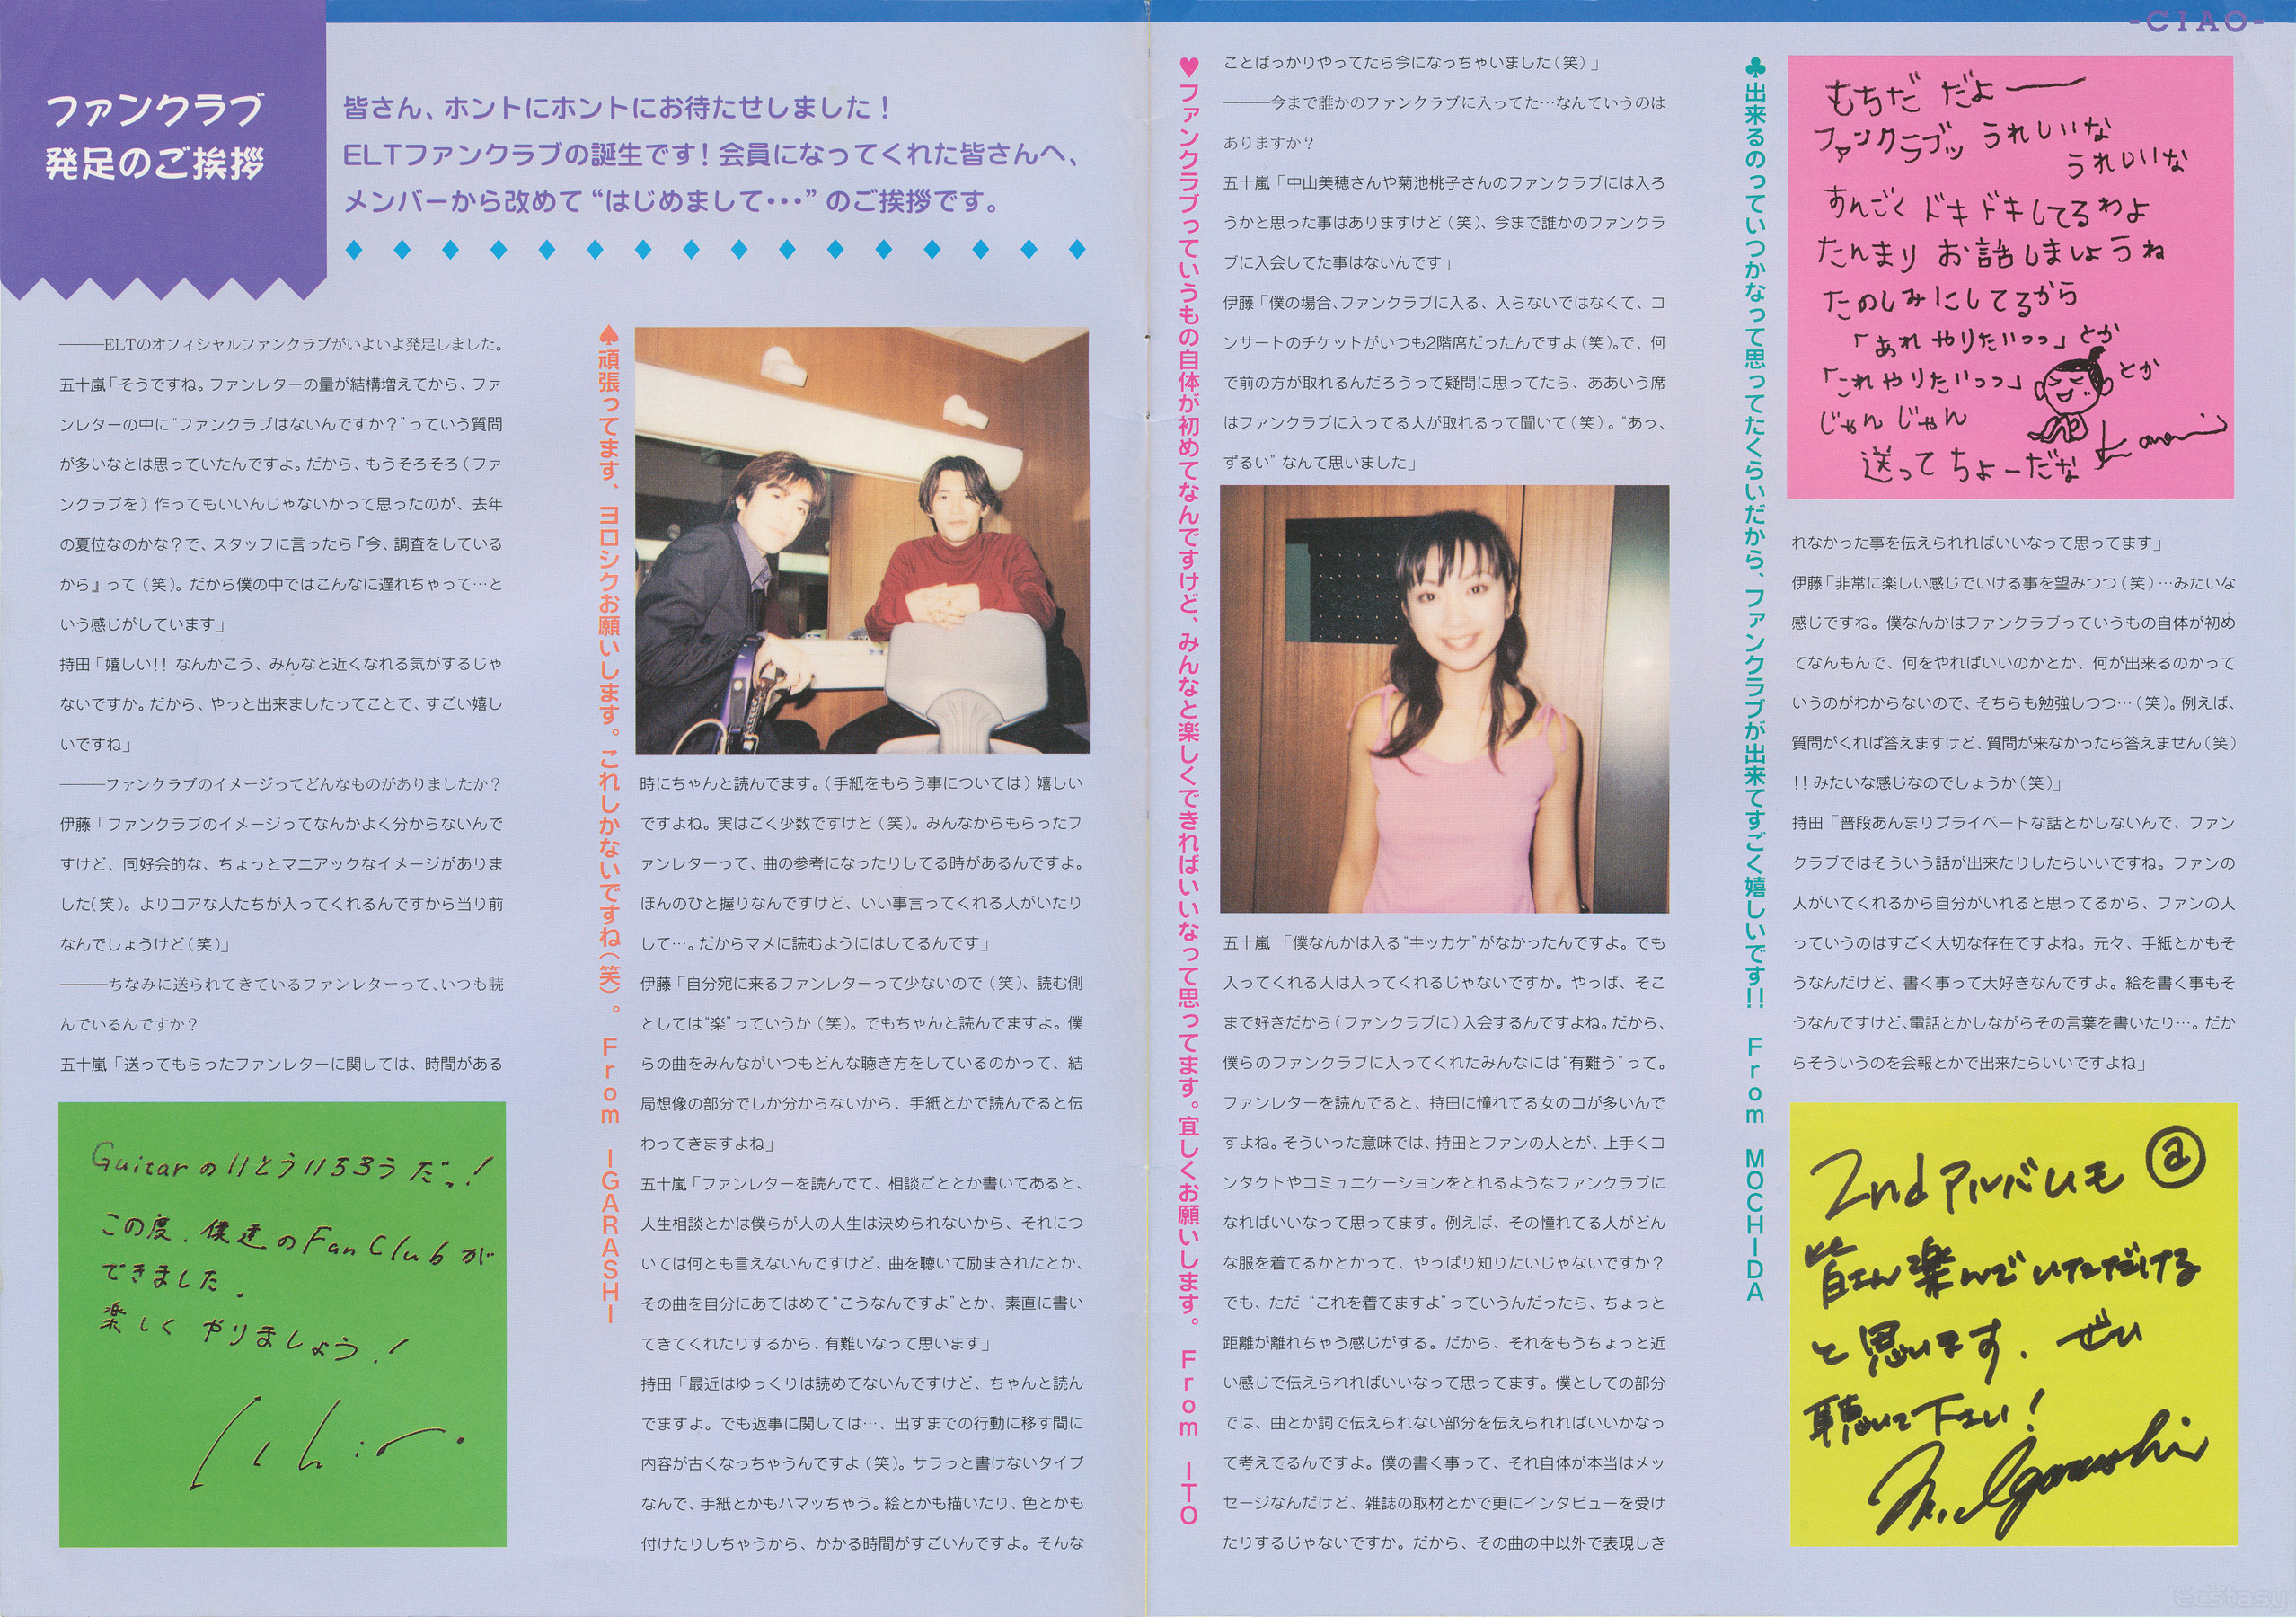 -CIAO-
ファンクラブ
発足のご挨拶
皆さん、ホントにホントにお待たせしました!
ELTファンクラブの誕生です!会員になってくれた皆さんへ、
メンバーから改めて“はじめまして・・・”のご挨拶です。
───ELTのオフィシャルファンクラブがいよいよ発足しました。
五十嵐「そうですね。ファンレターの量が結構増えてから、ファ
ンレターの中に“ファンクラブはないんですか?”っていう質問
が多いなとは思っていたんですよ。だから、もうそろそろ(ファ
ンクラブを)作ってもいいんじゃないかって思ったのが、去年
の夏位なのかな?で、スタッフに言ったら『今、調査をしている
から』って(笑)。だから僕の中ではこんなに遅れちゃって…と
いう感じがしています」
持田「嬉しい!! なんかこう、みんなと近くなれる気がするじゃ
ないですか。だから、やっと出来ましたってことで、すごい嬉し
いですね」
───ファンクラブのイメージってどんなものがありましたか?
伊藤「ファンクラブのイメージってなんかよく分からないんで
すけど、同好会的な、ちょっとマニアックなイメージがありま
した(笑)。よりコアな人たちが入ってくれるんですから当り前
なんでしょうけど(笑)」
───ちなみに送られてきているファンレターって、いつも読
んでいるんですか?
五十嵐「送ってもらったファンレターに関しては、時間がある
Guitarのいとういちろうだっ!
この度、僕達のFan Clubが
できました.
楽しくやりましょう!
♠頑張ってます、ヨロシクお願いします。これしかないですね(笑)。 From IGARASHI
時にちゃんと読んでます。(手紙をもらう事については)嬉しい
ですよね。実はごく少数ですけど(笑)。みんなからもらったフ
ァンレターって、曲の参考になったりしてる時があるんですよ。
ほんのひと握りなんですけど、いい事言ってくれる人がいたり
して…。だからマメに読むようにはしてるんです」
伊藤「自分宛に来るファンレターって少ないので(笑)、読む側
としては“楽”っていうか(笑)。でもちゃんと読んでますよ。僕
らの曲をみんながいつもどんな聴き方をしているのかって、結
局想像の部分でしか分からないから、手紙とかで読んでると伝
わってきますよね」
五十嵐「ファンレターを読んでて、相談ごととか書いてあると、
人生相談とかは僕らが人の人生は決められないから、それにつ
いては何とも言えないんですけど、曲を聴いて励まされたとか、
その曲を自分にあてはめて“こうなんですよ”とか、素直に書い
てきてくれたりするから、有難いなって思います」
持田「最近はゆっくりは読めてないんですけど、ちゃんと読ん
でますよ。でも返事に関しては…、出すまでの行動に移す間に
内容が古くなっちゃうんですよ(笑)。サラっと書けないタイプ
なんで、手紙とかもハマッちゃう。絵とかも描いたり、色とかも
付けたりしちゃうから、かかる時間がすごいんですよ。そんな
♥ファンクラブっていうもの自体が初めてなんですけど、みんなと楽しくできればいいなって思ってます。宜しくお願いします。 From ITO
ことばっかりやってたら今になっちゃいました(笑)」
───今まで誰かのファンクラブに入ってた…なんていうのは
ありますか?
五十嵐「中山美穂さんや菊池桃子さんのファンクラブには入ろ
うかと思った事はありますけど(笑)、今まで誰かのファンクラ
ブに入会してた事はないんです」
伊藤「僕の場合、ファンクラブに入る、入らないではなくて、コ
ンサートのチケットがいつも2階席だったんですよ(笑)。で、何
で前の方が取れるんだろうって疑問に思ってたら、ああいう席
はファンクラブに入ってる人が取れるって聞いて(笑)。“あっ、
ずるい”なんて思いました」
五十嵐 「僕なんかは入る“キッカケ”がなかったんですよ。でも
入ってくれる人は入ってくれるじゃないですか。やっぱ、そこ
まで好きだから(ファンクラブに)入会するんですよね。だから、
僕らのファンクラブに入ってくれたみんなには“有難う”って。
ファンレターを読んでると、持田に憧れてる女のコが多いんで
すよね。そういった意味では、持田とファンの人とが、上手くコ
ンタクトやコミュニケーションをとれるようなファンクラブに
なればいいなって思ってます。例えば、その憧れてる人がどん
な服を着てるかとかって、やっぱり知りたいじゃないですか?
でも、ただ “これを着てますよ”っていうんだったら、ちょっと
距離が離れちゃう感じがする。だから、それをもうちょっと近
い感じで伝えられればいいなって思ってます。僕としての部分
では、曲とか詞で伝えられない部分を伝えられればいいかなっ
て考えてるんですよ。僕の書く事って、それ自体が本当はメッ
セージなんだけど、雑誌の取材とかで更にインタビューを受け
たりするじゃないですか。だから、その曲の中以外で表現しき
♣出来るのっていつかなって思ってたくらいだから、ファンクラブが出来てすごく嬉しいです!! From MOCHIDA
もちだ だよー
ファンクラブッ うれしいな
うれしいな
すんごく ドキドキしてるわよ
たんまり お話しましょうね
たのしみにしてるから
「あれ やりたいっっ」とか
「これやりたいっっ」とか
じゃんじゃん
送ってちょーだな
れなかった事を伝えられればいいなって思ってます」
伊藤「非常に楽しい感じでいける事を望みつつ(笑)…みたいな
感じですね。僕なんかはファンクラブっていうもの自体が初め
てなんもんで、何をやればいいのかとか、何が出来るのかって
いうのがわからないので、そちらも勉強しつつ…(笑)。例えば、
質問がくれば答えますけど、質問が来なかったら答えません(笑)
!! みたいな感じなのでしょうか(笑)」
持田「普段あんまりプライベートな話とかしないんで、ファン
クラブではそういう話が出来たりしたらいいですね。ファンの
人がいてくれるから自分がいれると思ってるから、ファンの人
っていうのはすごく大切な存在ですよね。元々、手紙とかもそ
うなんだけど、書く事って大好きなんですよ。絵を書く事もそ
うなんですけど、電話とかしながらその言葉を書いたり…。だか
らそういうのを会報とかで出来たらいいですよね」
2ndアルバムも
皆さん楽んでいただける
と思います. ぜひ
聴いて下さい!
Igarashi
Ecstasy